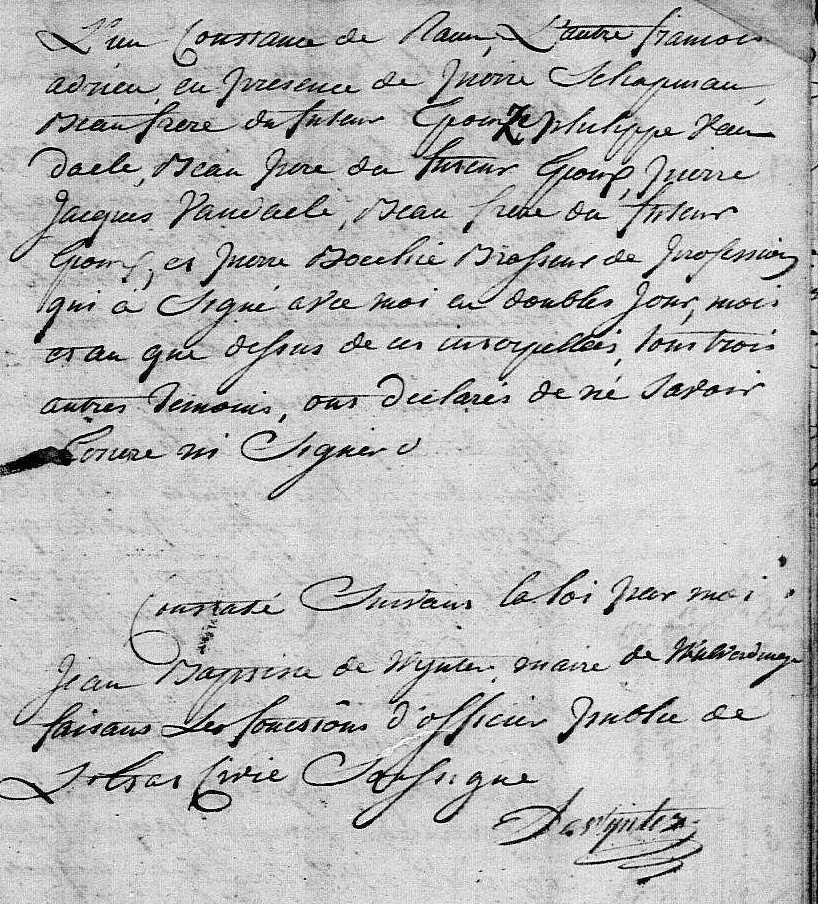 L'un Constance de Raun, L'autre francois
adrien, en presence de pierre Schapman,
Beau frere du futeur Epoux, philippe Van
daele, Beau pere du futeur Epoux, pierre
Jacques Vandaele, Beau frere du futeur
Epoux, et pierre Brasseur de profession
qui a Signé avec moi en doubles Jour, mois
et an que dessus de ce interpellés, tous trois
autres temoins, ont declarés de né Savoir
Ecrire ni Signer
Constaté Suivant la loi par moi
Jean Baptiste de Wynter maire de
faisant Les fonctions d'officier public de
L'Etat Civie Soussigne
DeWynter